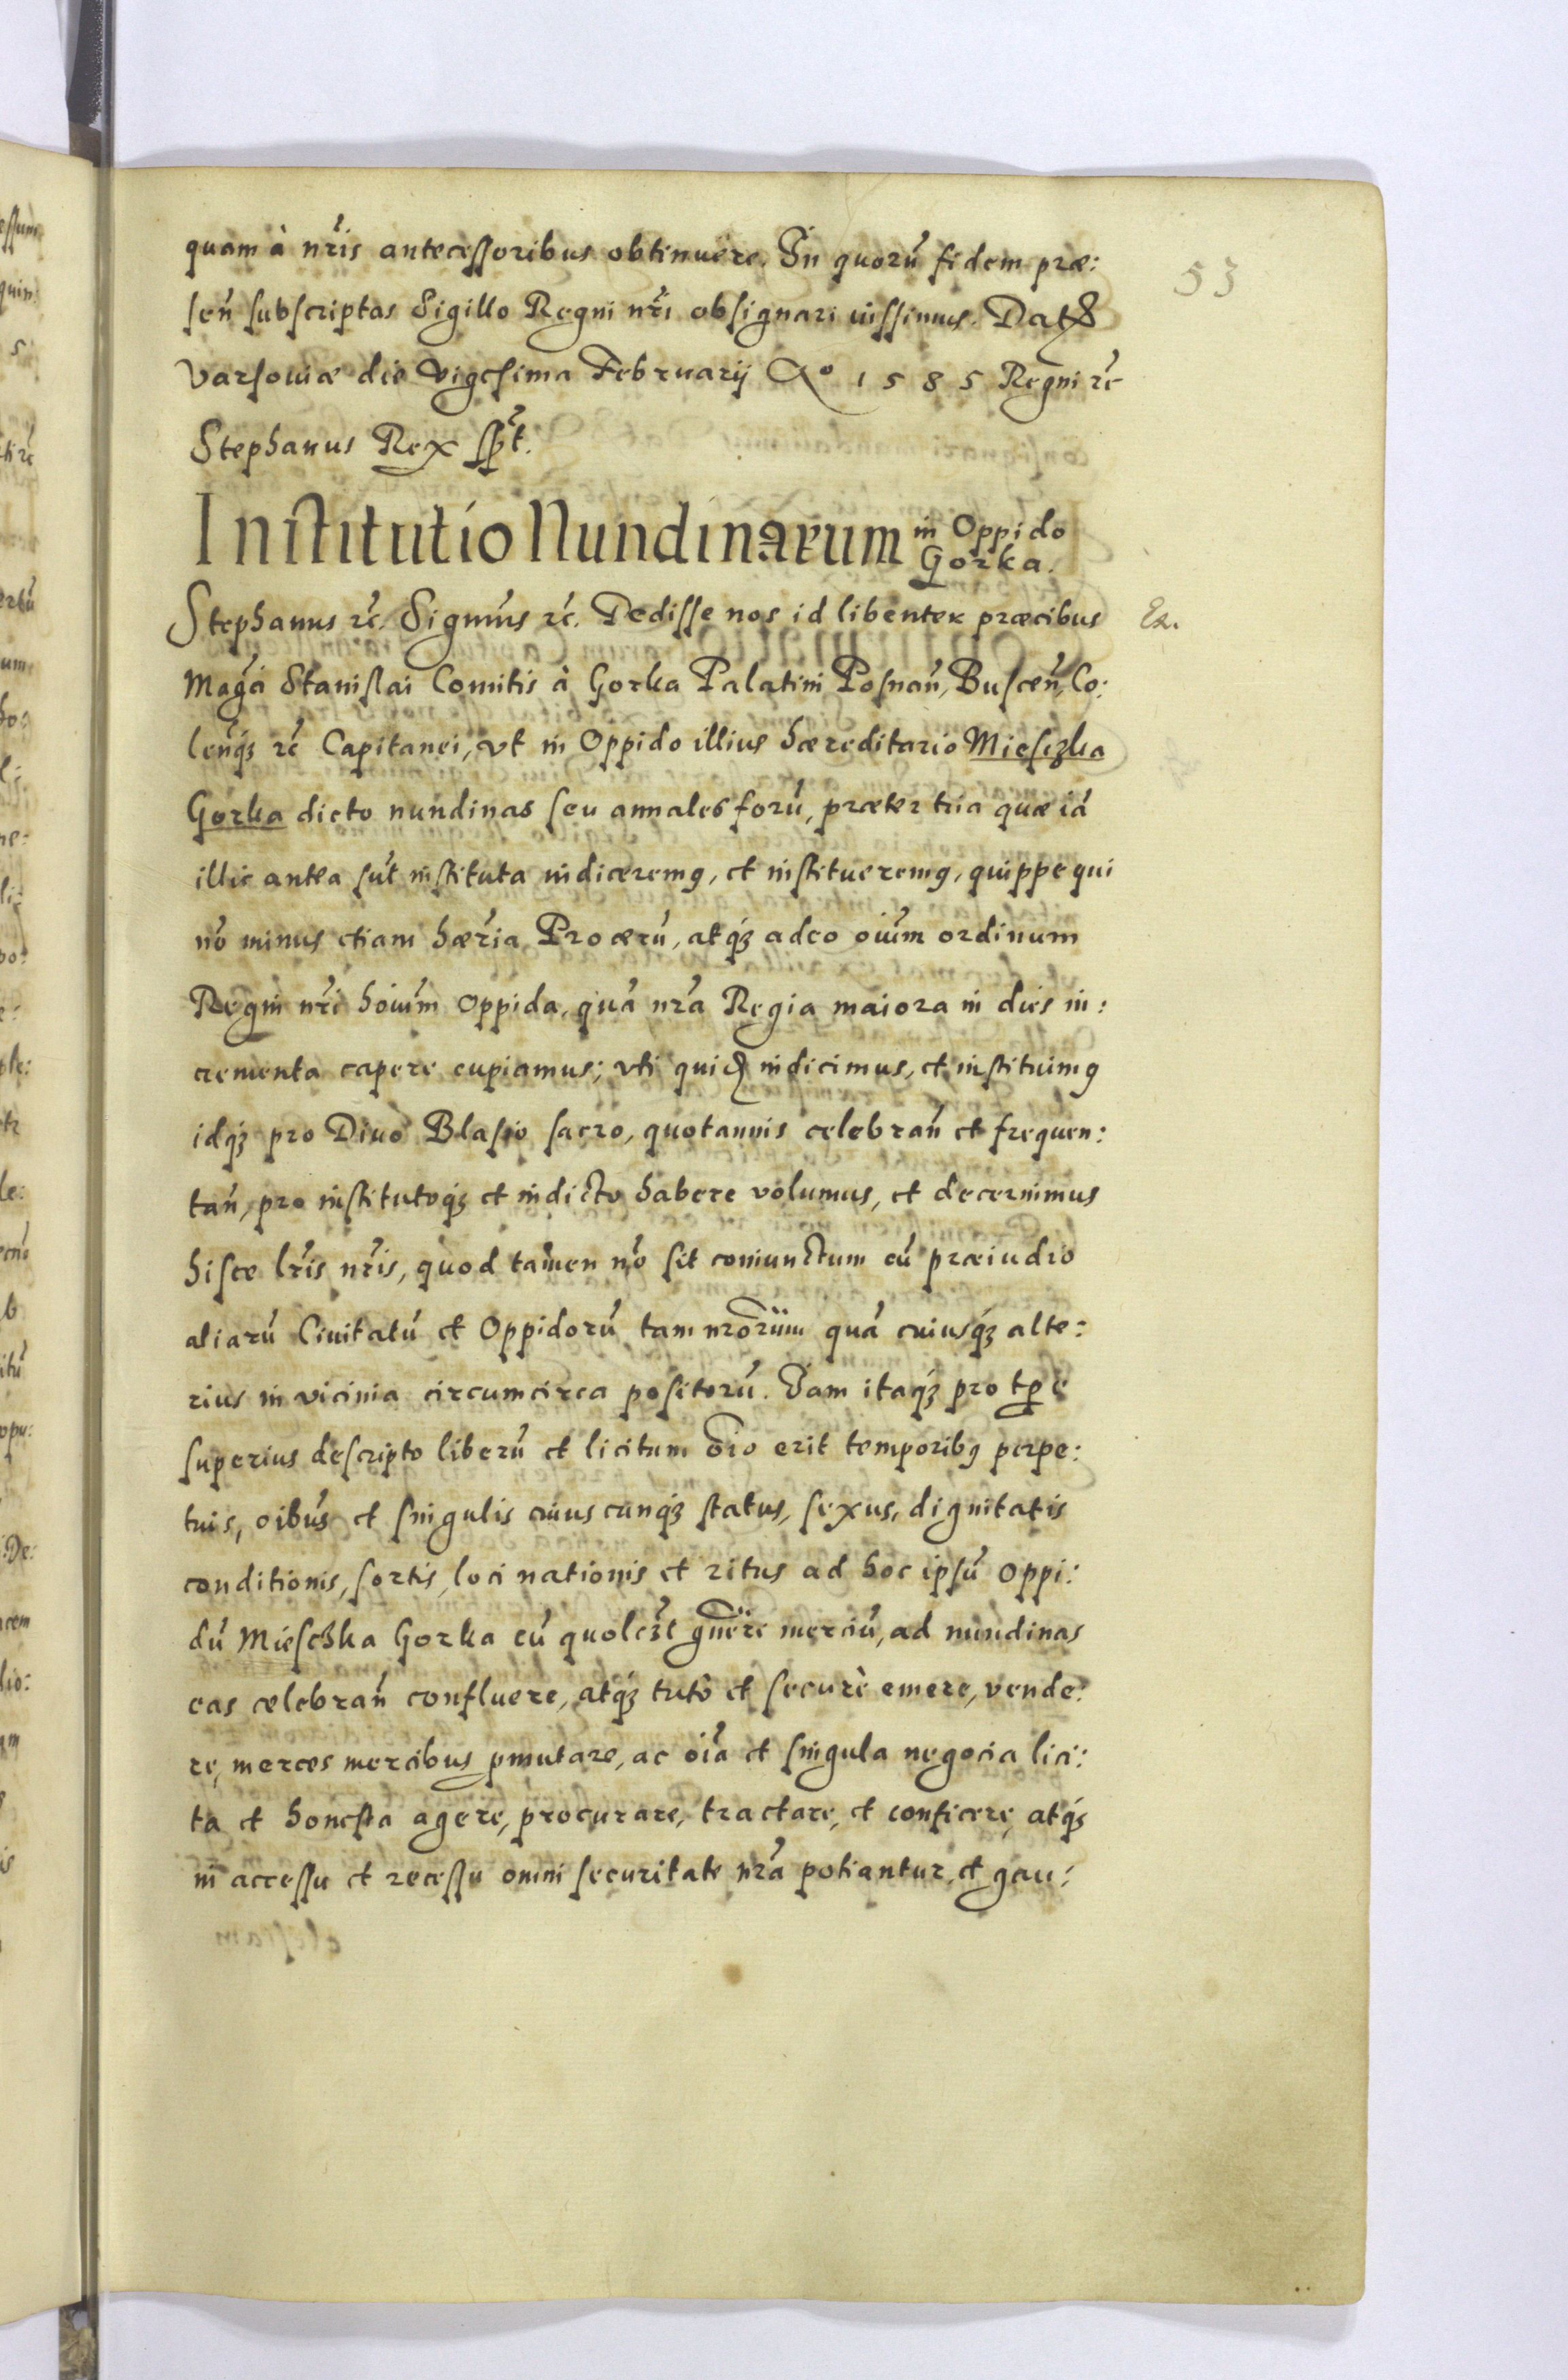 quam à nr̃is antecessoribus obtinuere. In quorũ fidem præ:
señ subscriptas Sigillo Regni nr̃i obsignari iussimus. Dat
Varsouiæ die Vigesima Februarij Ao 1585 Regni rc̃
Stephanus Rex sp̃t.
53
Institutio Nundinarum in Oppido
Gorka.
Stephanus rc̃. Signum̃s rc̃. Dedisse nos id libenter præcibus
Ex.
Mag̃ci Stanislai Comitis à Gorka Palatini Posnañ, Busceñ, Co:
leñq́ʒ rc̃ Capitanei, vt in Oppido illius hæreditario Miesczka
Gorka dicto nundinas seu annales forũ, præter tria quæ iã
illic antea sũt instituta indiceremꝰ, et institueremꝰ, quippe qui
nõ minus etiam hær̃ia Procerũ, atq́ʒ adeo oĩum ordinum
Regni nr̃i hoĩum oppida, quã nr̃a Regia maiora in dies in:
crementa capere cupiamus; vti quiđ indicimus, et instituimꝰ
idq́ʒ pro Diuo Blasio sacro, quotannis celebrañ et frequen:
tañ, pro institutoq́ʒ et indicto habere volumus, et decernimus
hisce lr̃is nr̃is, quod tamen nõ sit coniunctum cũ præiudio
aliarũ Ciuitatũ et Oppidorũ tam nrõrum quã cuiusq́ʒ alte:
rius in vicinia circumcirca positorũ. Iam itaq́ʒ pro tp̃e
superius descripto liberũ et licitum õio erit temporibꝰ perpe:
tuis, oĩbus et singulis cuiuscunq́ʒ status, sexus, dignitatis
conditionis, sortis, loci nationis et ritus ad hoc ipsũ oppi:
dũ Mieschka Gorka cũ quolcʒt gñere merciũ, ad nundinas
eas celebrañ confluere, atq́ʒ tutò et securè emere, vende:
re, merces mercibus ꝑmutare, ac oĩa et singula negocia lici:
ta et honesta agere, procurare, tractare, et conficere, atq́ʒ
in accessu et recessu omni securitate nr̃a potiantur, et gau: